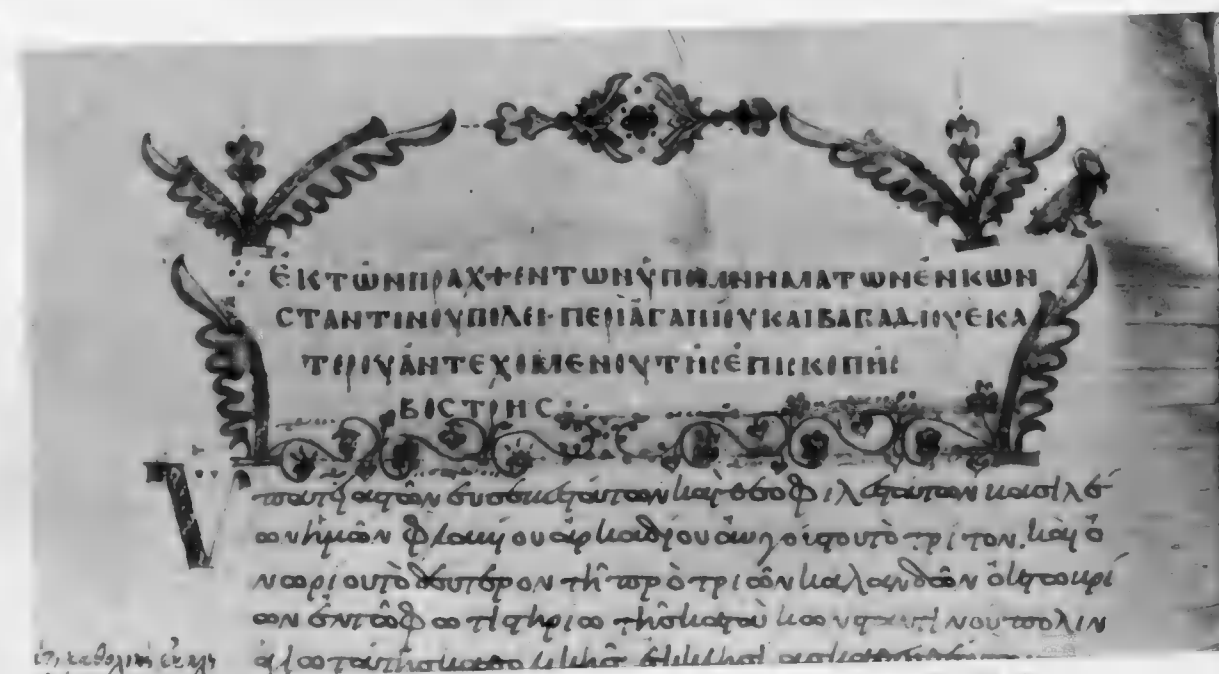 ἘΚΤῶΝΠΡΑΧΘΕΝΤΩΝὙΠΟΜΝΗΜΑΤΩΝἘΝΚΩΝ
ΣΤΑΝΤΙΝΟΥΠΟΛΕΙ· ΠΕΡῚἈΓΑΠΙΟΥΚΑΙΒΑΓΑΔΙΟΥΕΚΑ
ΤΕΡΟΥἈΝΤΕΧΟΜΕΝΟΥΤΗΣἘΠΙΣΚΟΠΗΣ
ΒΟΣΤΡΗΣ
Ὑπατείας τῶν εὐσεβεστάτων καὶ θεοφιλεστάτων βασιλέ
ων ἡμῶν φλαυίου ἀρκαδίου αὐγούστου τὸ τρίτον. καὶ ὁ
νωρίου τὸ δεύτερον τῇ πρὸ τριῶν καλανδῶν ὀκτωβρί
ων ἐν τῷ φωτιστηρίω τῆς κατὰ κωνσταντινούπολιν
ἁγιωτάτης